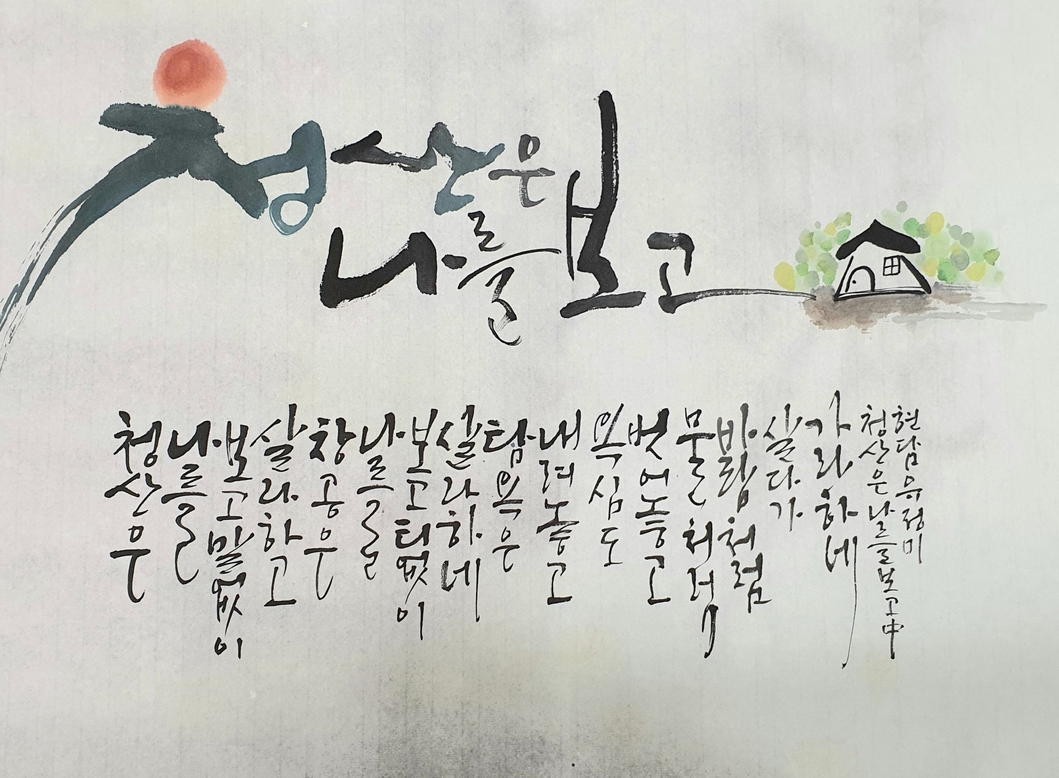 청산은
나를 보고
청산은
나를
보고 말없이
살라하고
창공은
나를
보고 티없이
살라하네
탐욕은
내려놓고
욕심도
벗어놓고
물처럼
바람처럼
살다가
가라하네
청산은 나를 보고 中
현담 유정미